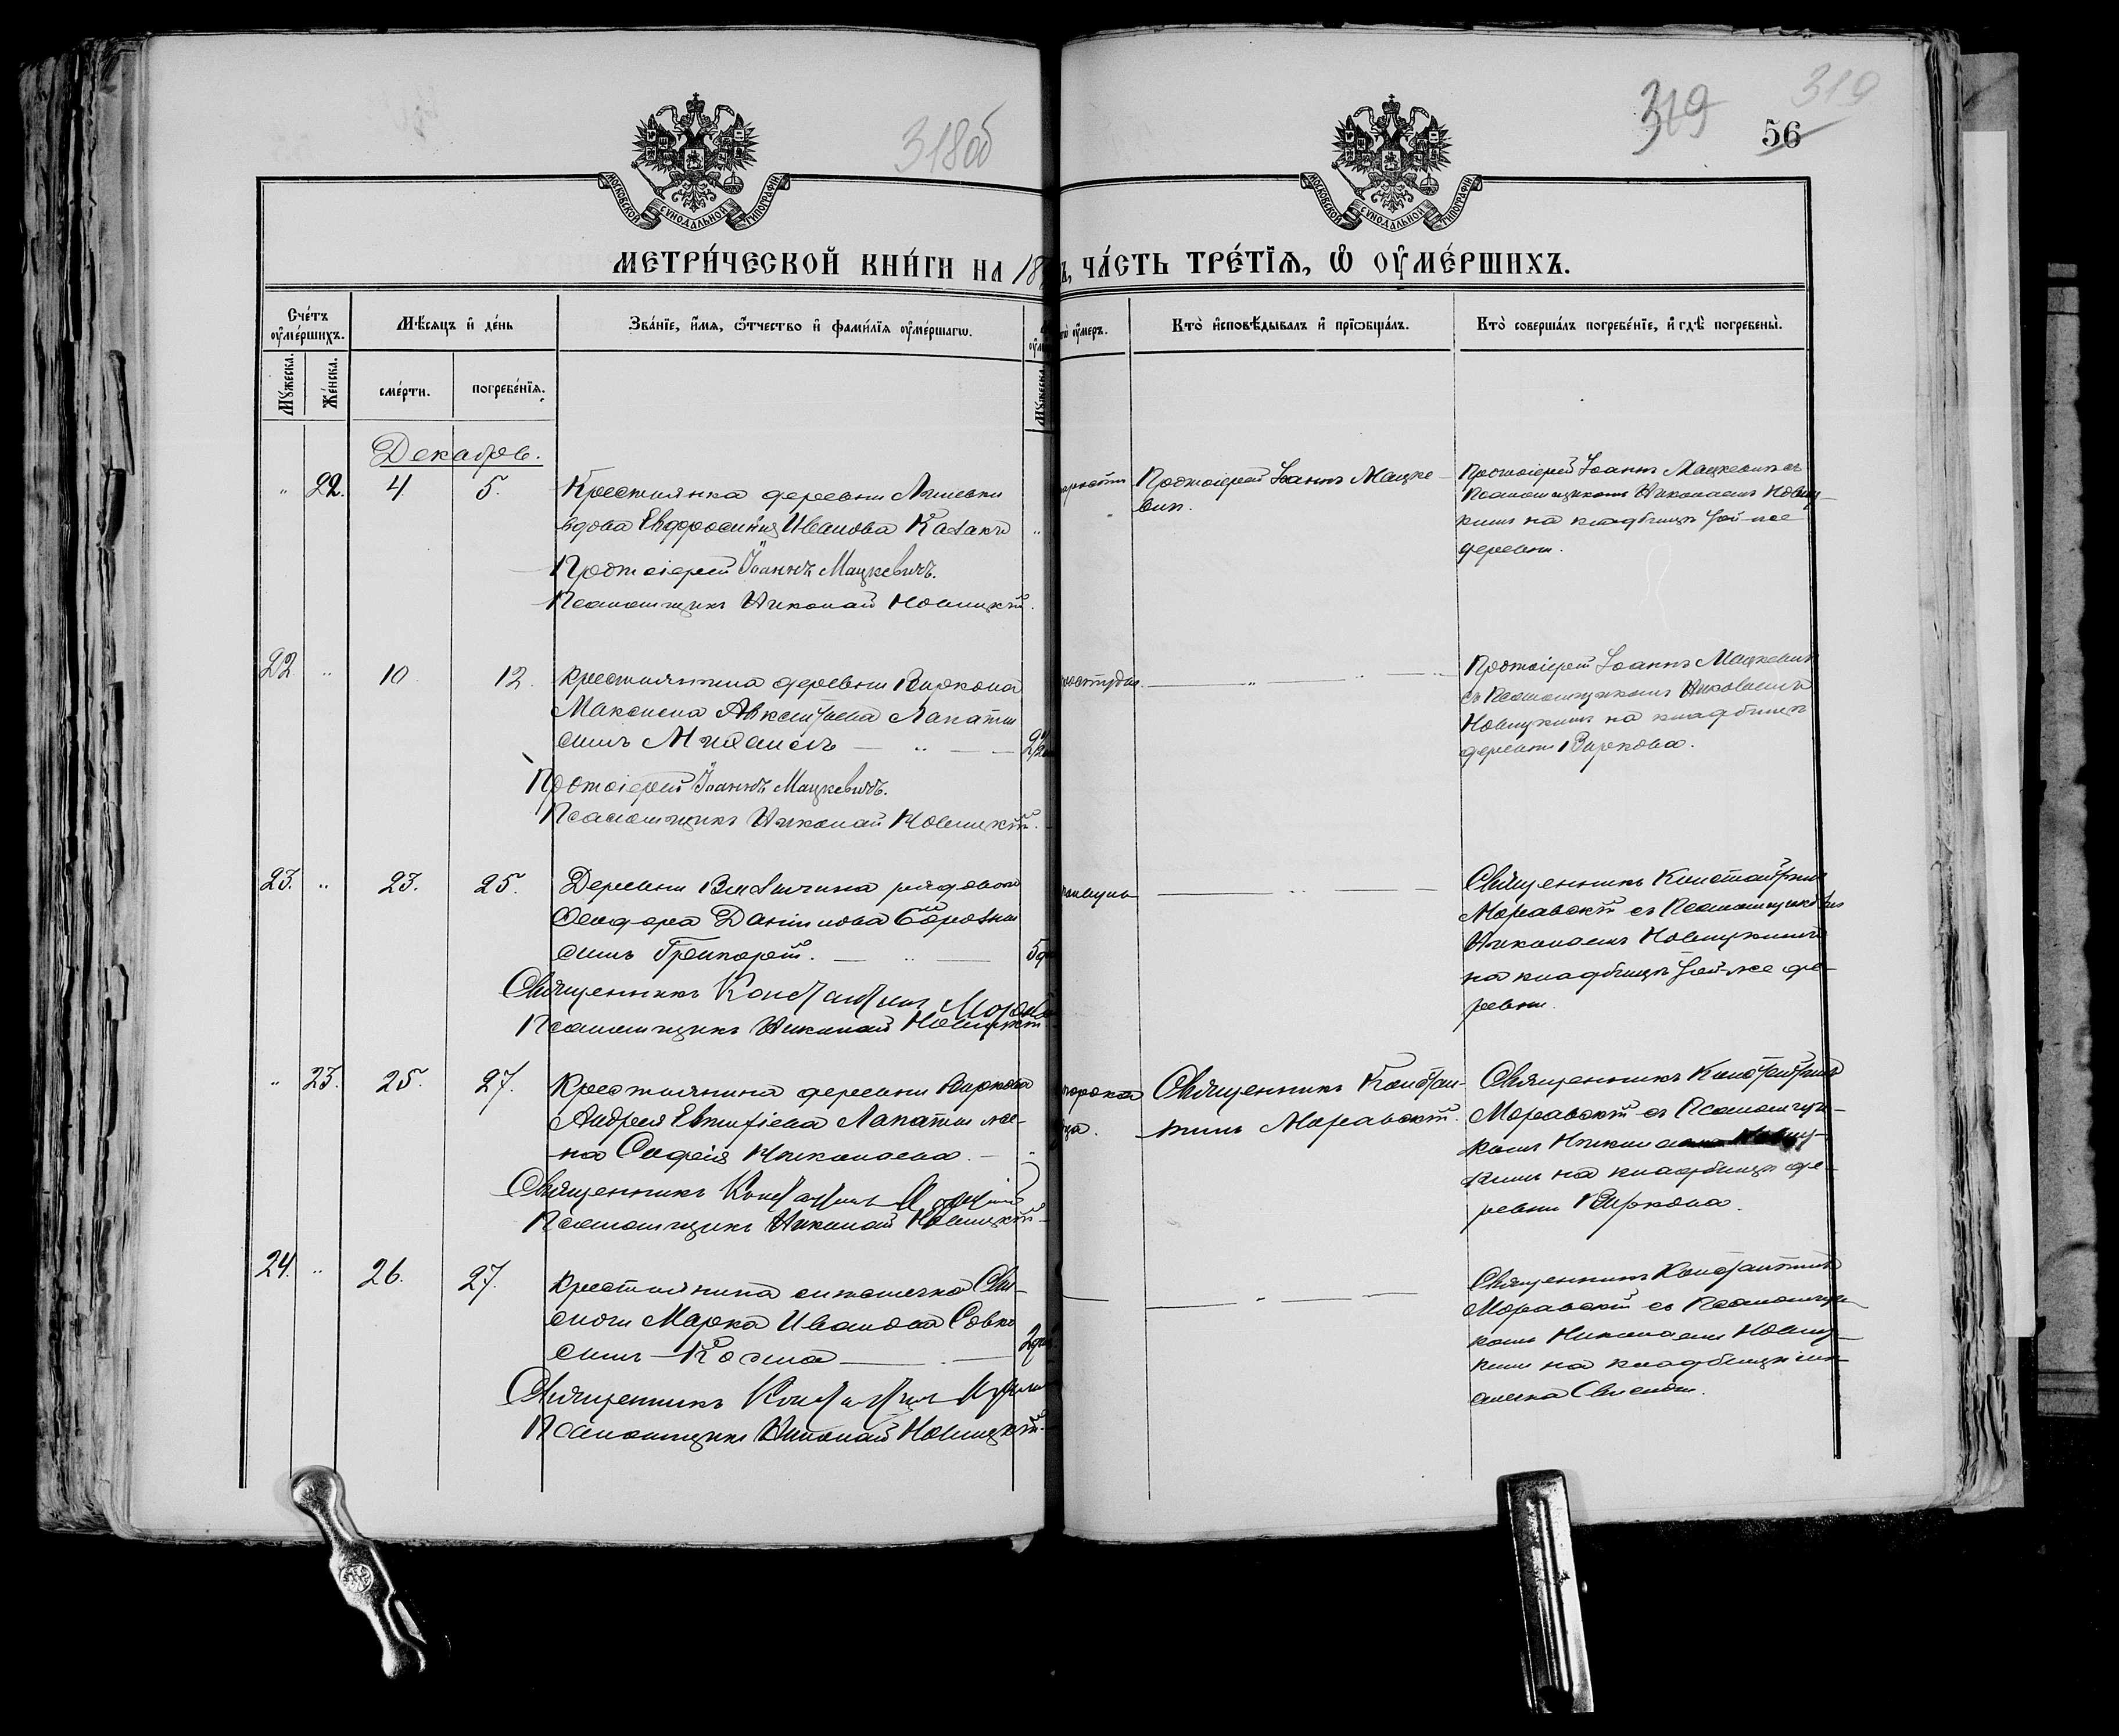 318об
319
319
56
МОСКОВСКОЙ СѴНОДАЛЬНОЙ ТИПОГРАФІИ
МОСКОВСКОЙ СѴНОДАЛЬНОЙ ТИПОГРАФІИ
МЕТРИ́ЧЕСКОЙ КНИ́ГИ НА 18
ЧА́СТЬ ТРЕ́ТЇѦ, Ѡ ОУМЕ́РШИХЪ.
Сче́тъ оумершихъ.
Мѣ́сяцъ и де́нь
Зва́нїе, и́мя, ѻ́тчество и фами́лїя оуме́ршагѡ.
оумеръ.
Кто̀ исповѣ́дывалъ и прїѡбща́лъ.
Кто̀ соверша́лъ погребе́нїе, и гдѣ̀ погребены̀.
Мужеска.
Же́нска.
сме́рти.
погребе́нїя.
Мужеска
Декабрь.
" 22. 4 5.
Крестьянка деревни
вдова Евфросинія Иванова Казакъ
Протоіерей Іоаннъ Мацкевичъ.
Псаломщикъ Николай Новицкій.
Протоіерей Іоаннъ Мацке-
вич.
Протоіерей Іоаннъ Мацкевичъ съ
Псаломщикомъ Николаемъ Новиц-
кимъ на кладбищѣ той-же
деревни.
22 " 10 12.
Крестьянина деревни Виркова
Максима Авксентіева Лапати
сынъ Михаилъ
Протоіерей Іоаннъ Мацкевичъ.
Псаломщикъ Николай Новицкій.
простуды
Протоіерей Іоаннъ Мацкевичъ
съ Псаломщикомъ Николаемъ
Новицкимъ на кладбищѣ
деревни Виркова.
23. " 23. 25.
Деревни рядового
Феодора Даніилова
сынъ Григорій.
Священникъ Константинъ
Псаломщикъ Николай Новицкій
Священникъ Константинъ
Моравскій съ Псаломщикомъ
Николаемъ Новицкимъ
на кладбищѣ той-же де-
ревни.
" 23. 25. 27.
Крестьянина деревни Виркова
Андрея Евтихіева Лапати же-
на Софія Николаева.
Священникъ Константинъ
Псаломщикъ Николай Новицкій
Священникъ Констан-
тинъ Моравскій.
Священникъ Константинъ
Моравскій съ Псаломщи-
комъ
кимъ на кладбищѣ де-
ревни Виркова.
24. " 26. 27.
Крестьянина Сви-
слочи Марка Иванова
сынъ Козма
Священникъ Константинъ
Псаломщикъ Николай Новицкій.
Священникъ Константинъ
Моравскій съ Псаломщи-
комъ Николаемъ Новиц-
кимъ на кладбищѣ
Свислочи.